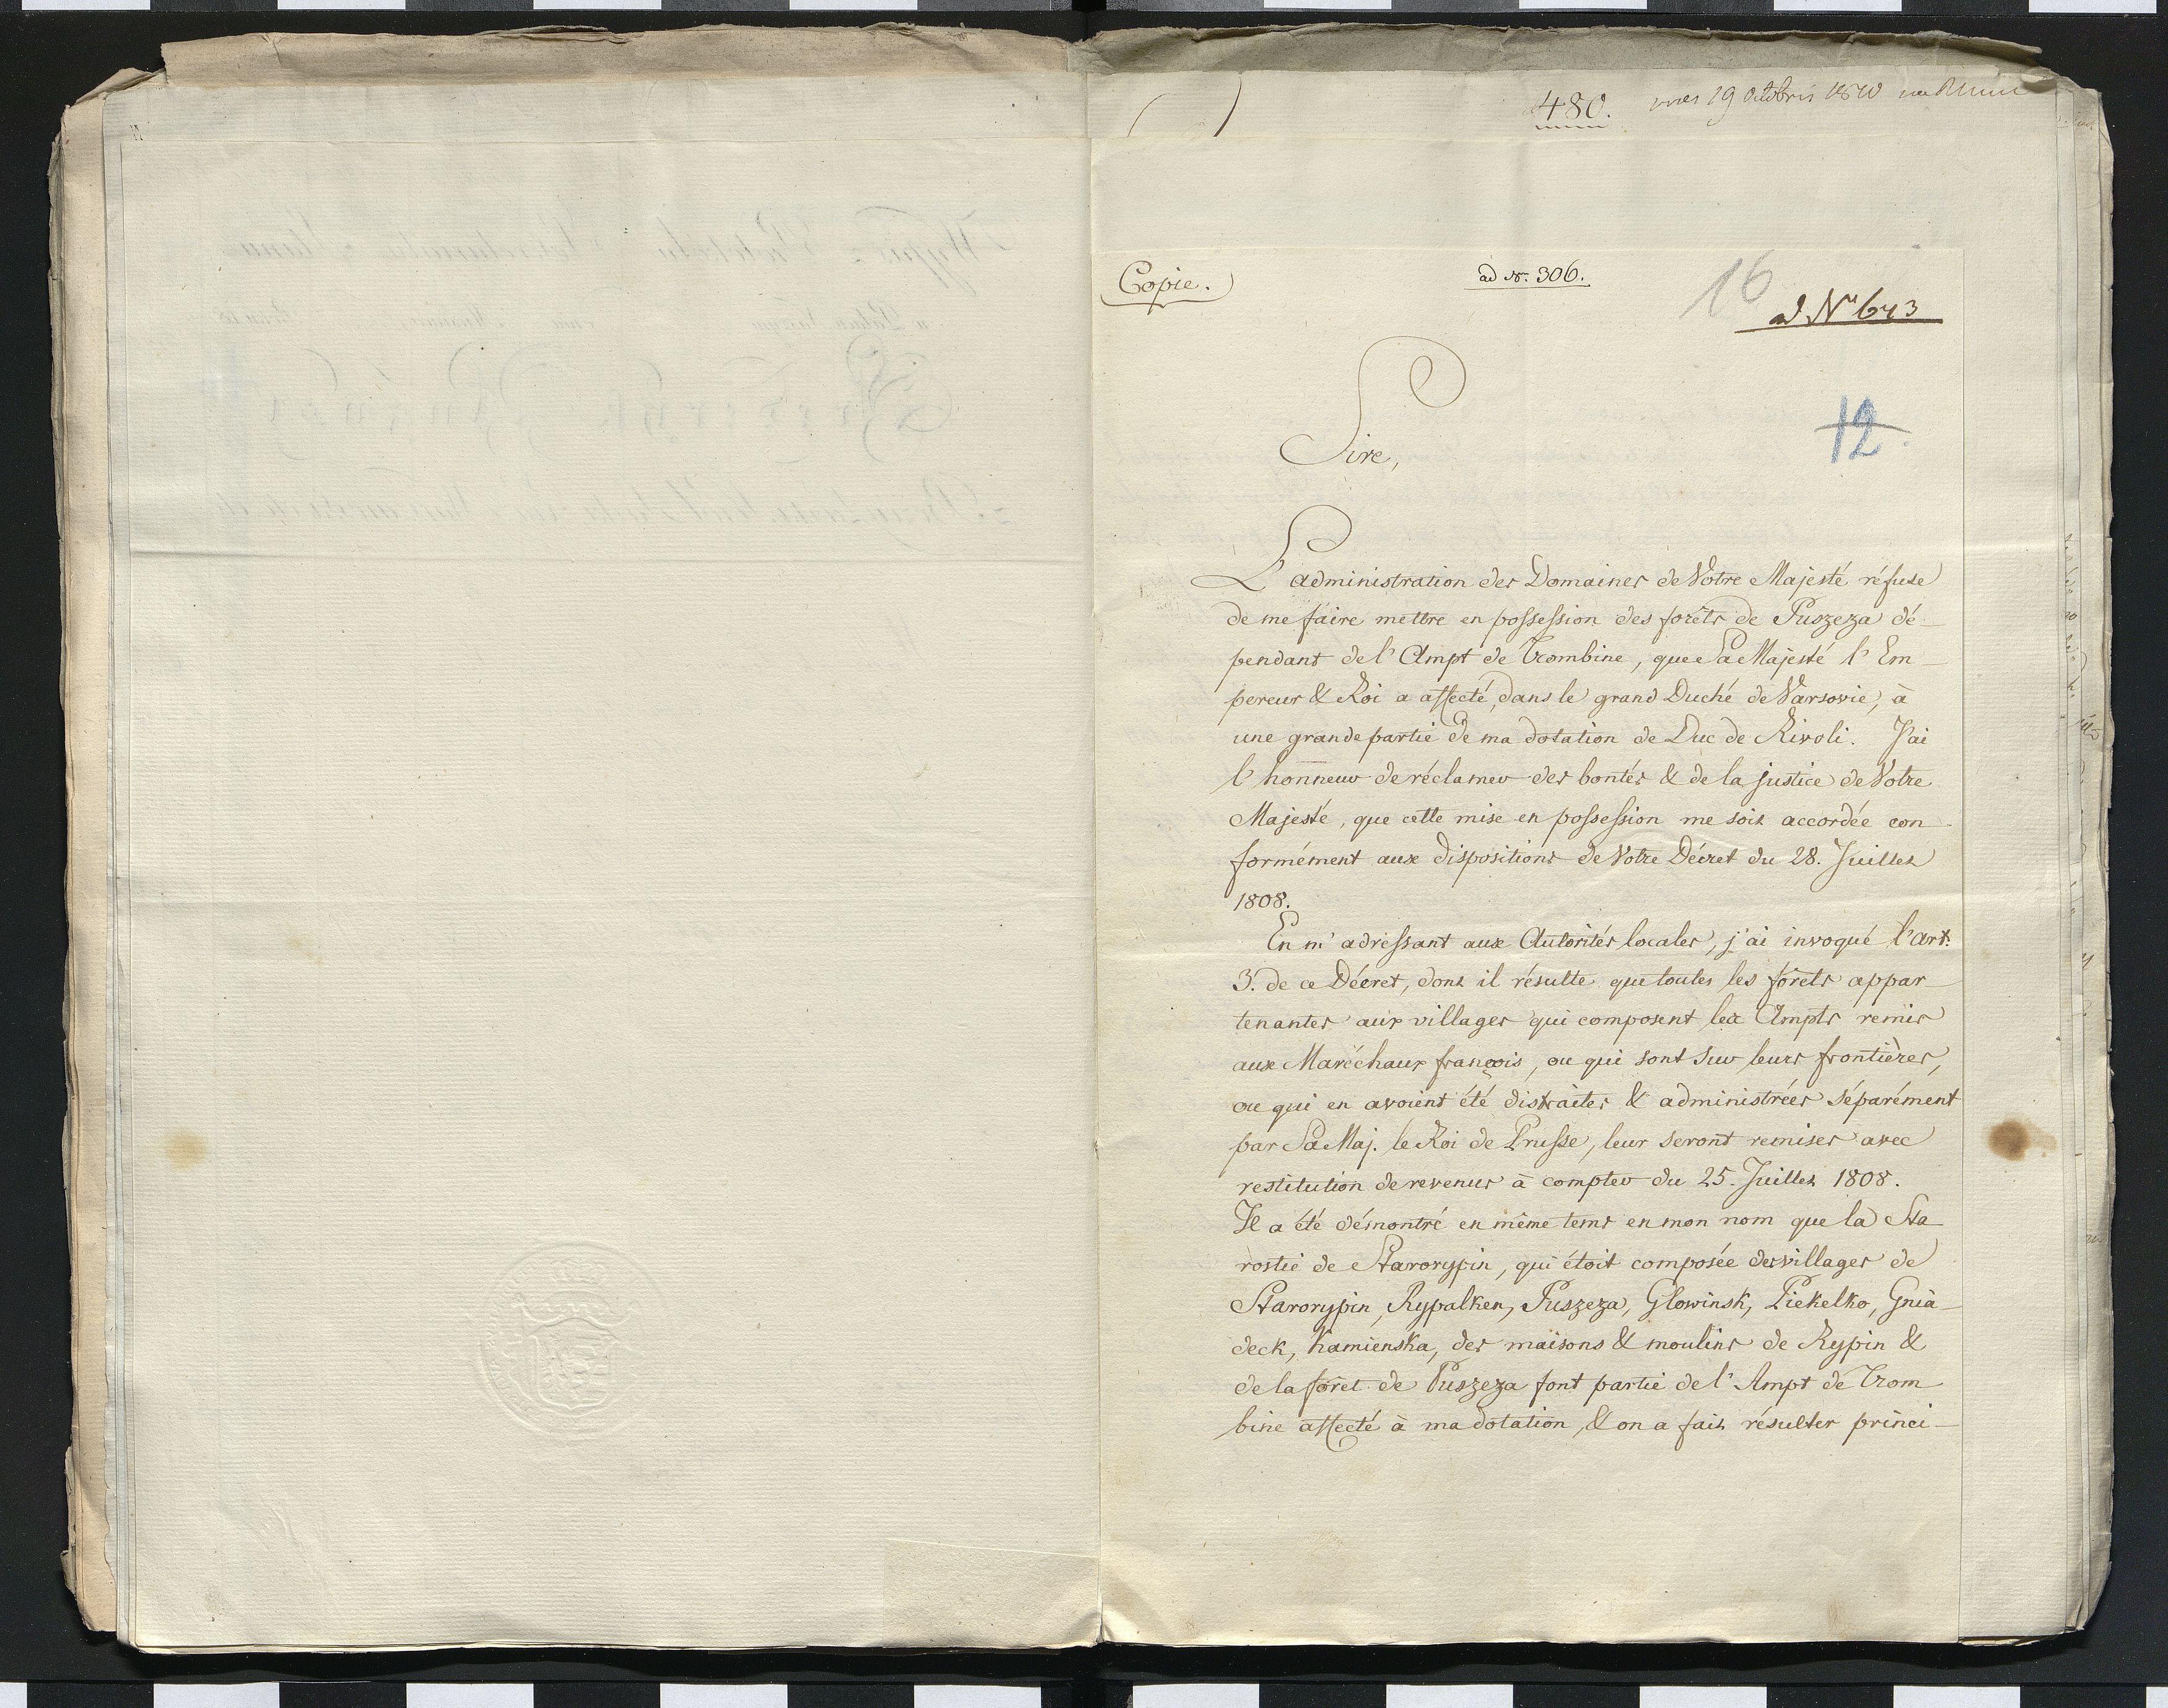 480. 19 Octobris 1810
Copie.
ad No. 306.
16
ad No 643
12
Sire,
L'administration des Domaines de Votre Majesté réfuse
de me faire mettre en possession des forêts de Puszeza dé-
pendant de l'Ampt de Trombine, que Sa Majesté l'Em-
pereur & Roi a affecté, dans le grand Duché de Varsovie, à
une grande partie de ma dotation de Duc de Rivoli. J'ai
l'honneur de réclamer des bontés & de la justice de Votre
Majesté, que cette mise en possession me soit accordée con-
formément aux dispositions de Votre Décret du 28. Juillet
1808.
En m'adressant aux Autorités locales, j'ai invoqué l'art.
3. de ce Décret, dont il résulte que toutes les forêts appar-
tenantes aux villages qui composent les Ampts remis
aux Maréchaux françois, ou qui sont sur leurs frontières,
ou qui en avoient été distraites & administrées séparément
par Sa Maj. le Roi de Prusse, leur seront remises avec
restitution de revenus à compter du 25. Juillet 1808.
Il a été démontré en même tems en mon nom que la Sta-
rostie de Starorypin, qui étoit composée des villages de
Starorypin, Rypalken, Puszeza, Glowinsk, Piekelko, Gnia-
deck, Kamienska, des maisons & moulins de Rypin &
de la forêt de Puszeza font partie de l'Ampt de Trom-
bine affecté à ma dotation, & on a fait résulter princi-